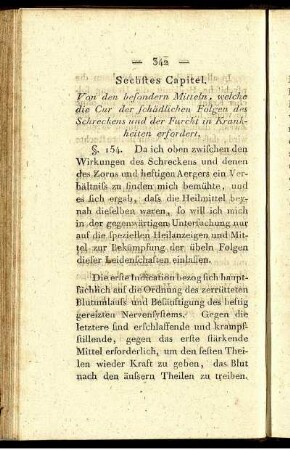 — 342 —
Sechſtes Capitel.
Von den beſondern Mitteln, welche
die Cur der ſchädlichen Folgen des
Schreckens und der Furcht in Krank-
heiten erfordert.
§. 154. Da ich oben zwiſchen den
Wirkungen des Schreckens und denen
des Zorns und heftigen Aergers ein Ver-
hältniſs zu finden mich bemühte, und
es ſich ergab, daſs die Heilmittel bey-
nah dieſelben waren, ſo will ich mich
in der gegenwärtigen Unterſuchung nur
auf die ſpeziellen Heilanzeigen und Mit-
tel zur Bekämpfung der übeln Folgen
dieſer Leidenſchaften einlaſſen.
Die erſte Indication bezog ſich haupt-
ſächlich auf die Ordnung des zerrütteten
Blutumlaufs und Beſänftigung des heftig
gereizten Nervenſyſtems. Gegen die
letztere ſind erſchlaffende und krampf-
ſtillende, gegen das erſte ſtärkende
Mittel erforderlich, um den feſten Thei-
len wieder Kraft zu geben, das Blut
nach den äuſsern Theilen zu treiben.